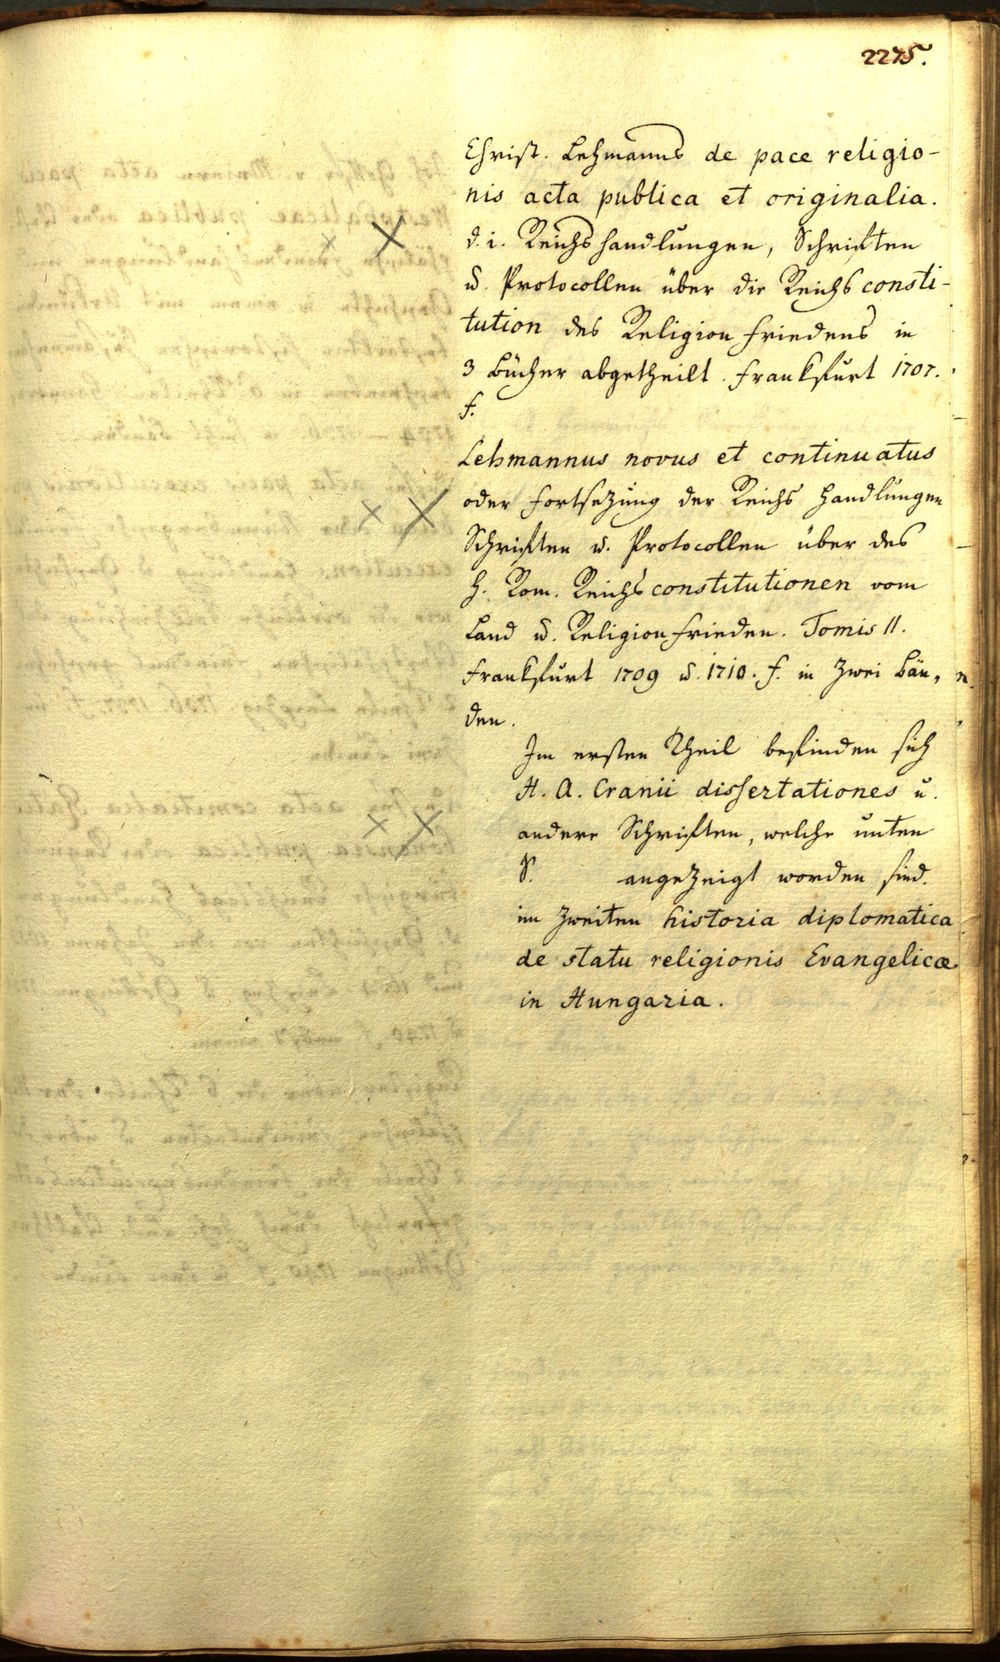 2275.
Christ. Lehmanns de pace religio-
nis acta publica et originalia.
d. i. Reichshandlungen, Schriften
u. Protocollen über die Reichsconsti-
tution des Religion Friedens in
3 Bücher abgetheilt. Frankfurt 1707.
f.
Lehmannus novus et continuatus
oder Fortsetzung der Reichs Handlungen
Schriften u. Protocollen über des
H. Röm. Reichs constitutionen vom
Land u. Religion Frieden. Tomis II.
Frankfurt 1709 u. 1710. f. in Zwei Bän-
den.
Im ersten Theil befinden sich
H. A. Cranii dissertationes u.
andere Schriften, welche unten
S. angezeigt worden sind.
im Zweiten historia diplomatica
de statu religionis Evangelicæ
in Hungaria.